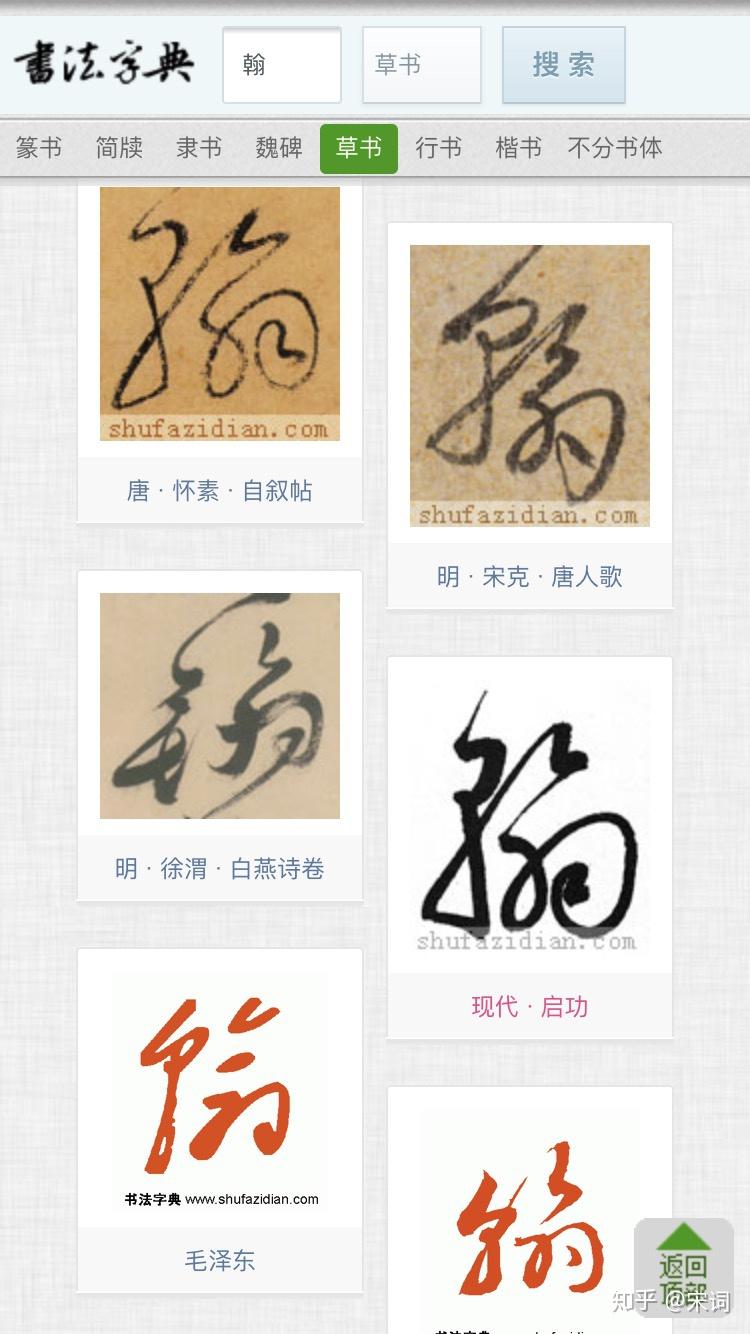 書法字典 翰 草书 搜 索
篆书 简牍 隶书 魏碑 草书 行书 楷书 不分书体
翰
shufazidian.com
唐 · 怀素 · 自叙帖
翰
shufazidian.com
明 · 宋克 · 唐人歌
翰
明 · 徐渭 · 白燕诗卷
翰
shufazidian.com
现代 · 启功
翰
书法字典 www.shufazidian.com
毛泽东
翰
返回
顶部
知乎 @宋词